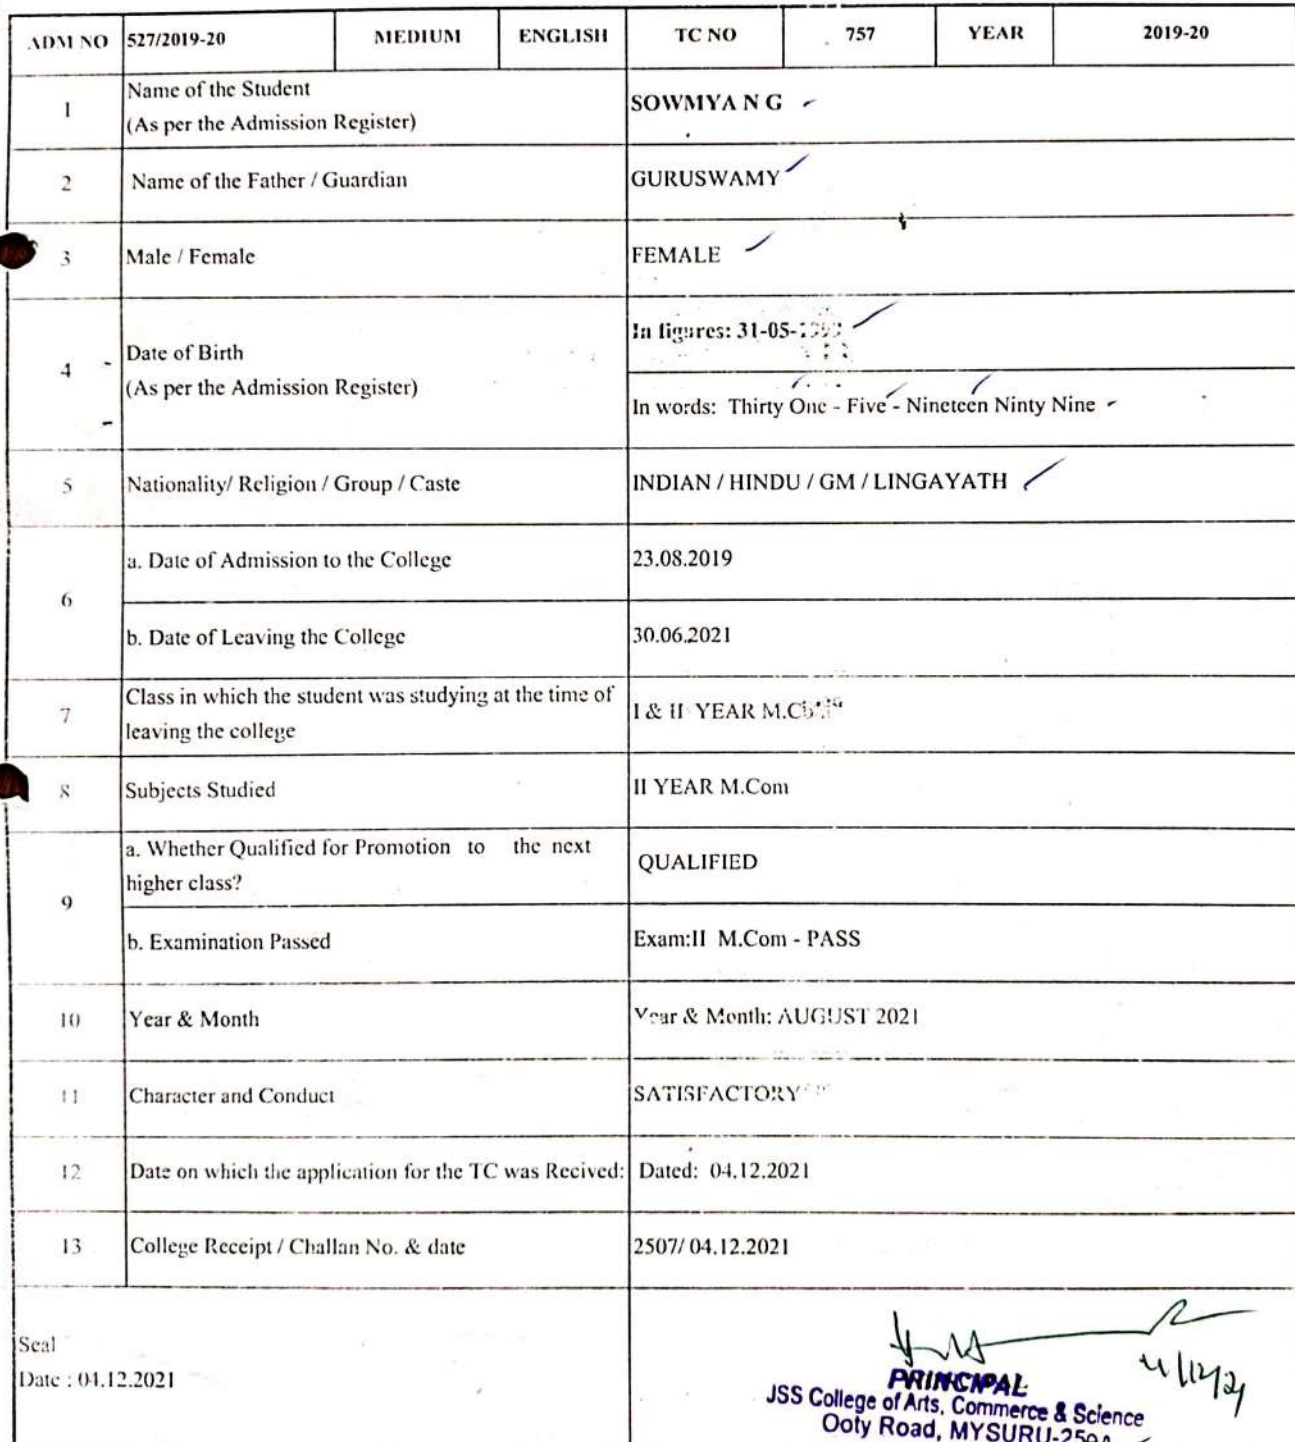 ADM NO 527/2019-20 MEDIUM ENGLISH TC NO 757 YEAR 2019-20
1 Name of the Student
(As per the Admission Register) SOWMYA N G
2 Name of the Father / Guardian GURUSWAMY
3 Male / Female FEMALE
4 Date of Birth
(As per the Admission Register)
In figures: 31-05-
In words: Thirty One - Five - Nineteen Ninty Nine
5 Nationality/ Religion / Group / Caste INDIAN / HINDU / GM / LINGAYATH
6 a. Date of Admission to the College 23.08.2019
b. Date of Leaving the College 30.06.2021
7 Class in which the student was studying at the time of
leaving the college I & II YEAR
8 Subjects Studied II YEAR M.Com
9 a. Whether Qualified for Promotion to the next
higher class? QUALIFIED
b. Examination Passed Exam:II M.Com - PASS
10 Year & Month Year & Month: AUGUST 2021
11 Character and Conduct SATISFACTORY
12 Date on which the application for the TC was Recived: Dated: 04.12.2021
13 College Receipt / Challan No. & date 2507/ 04.12.2021
Seal
Date : 04.12.2021
4/12/21
PRINCIPAL
JSS College of Arts, Commerce & Science
Ooty Road, MYSURU-250A